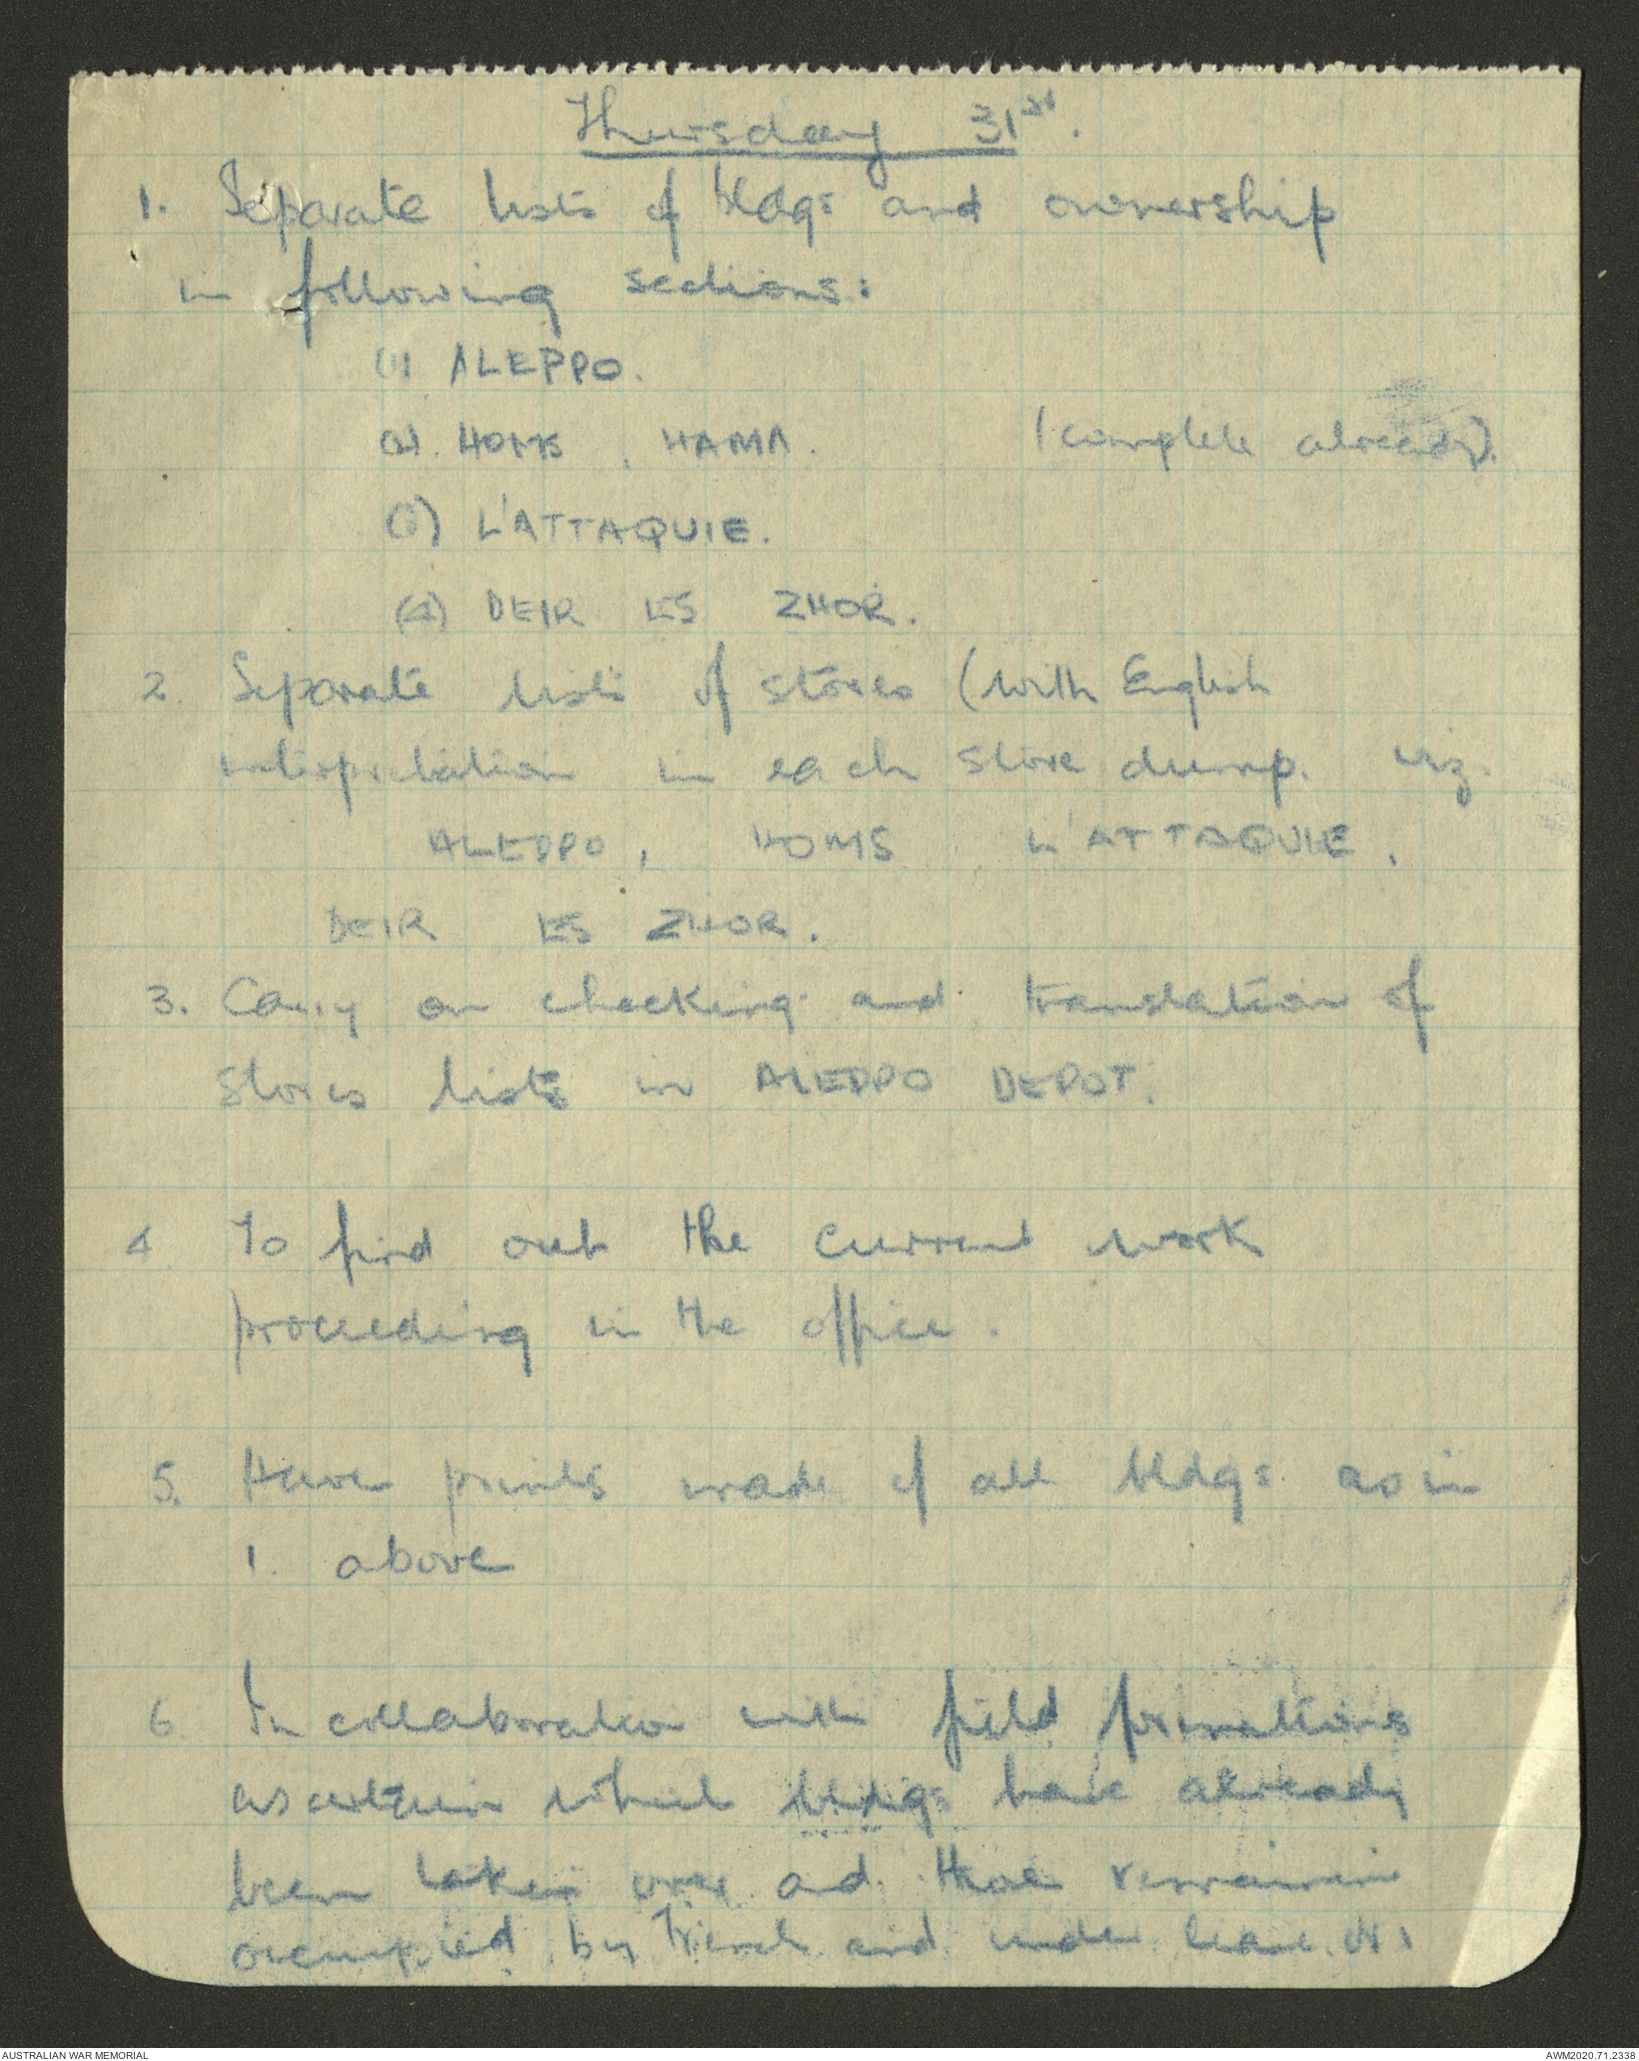 Thursday 31st.
1. Separate lists of bldgs and ownership
in following sections:
(1) ALEPPO.
(2). HOMS, HAMA. (complete already).
(3) L'ATTAQUIE.
(4) DEIR ES ZHOR.
2. Separate lists of stores (with English
interpretation in each store dump. viz.
ALEPPO, HOMS, L'ATTAQUIE,
DEIR ES ZHOR.
3. Carry on checking and translation of
stores lists in ALEPPO DEPOT.
4. To find out the current work
proceeding in the office.
5. Have prints made of all bldgs as in
1. above
6. In collaboration with field formations
ascertain which bldgs have already
been taken over and those remaining
occupied by French and under lease
AUSTRALIAN WAR MEMORIAL
AWM2020.71.2338